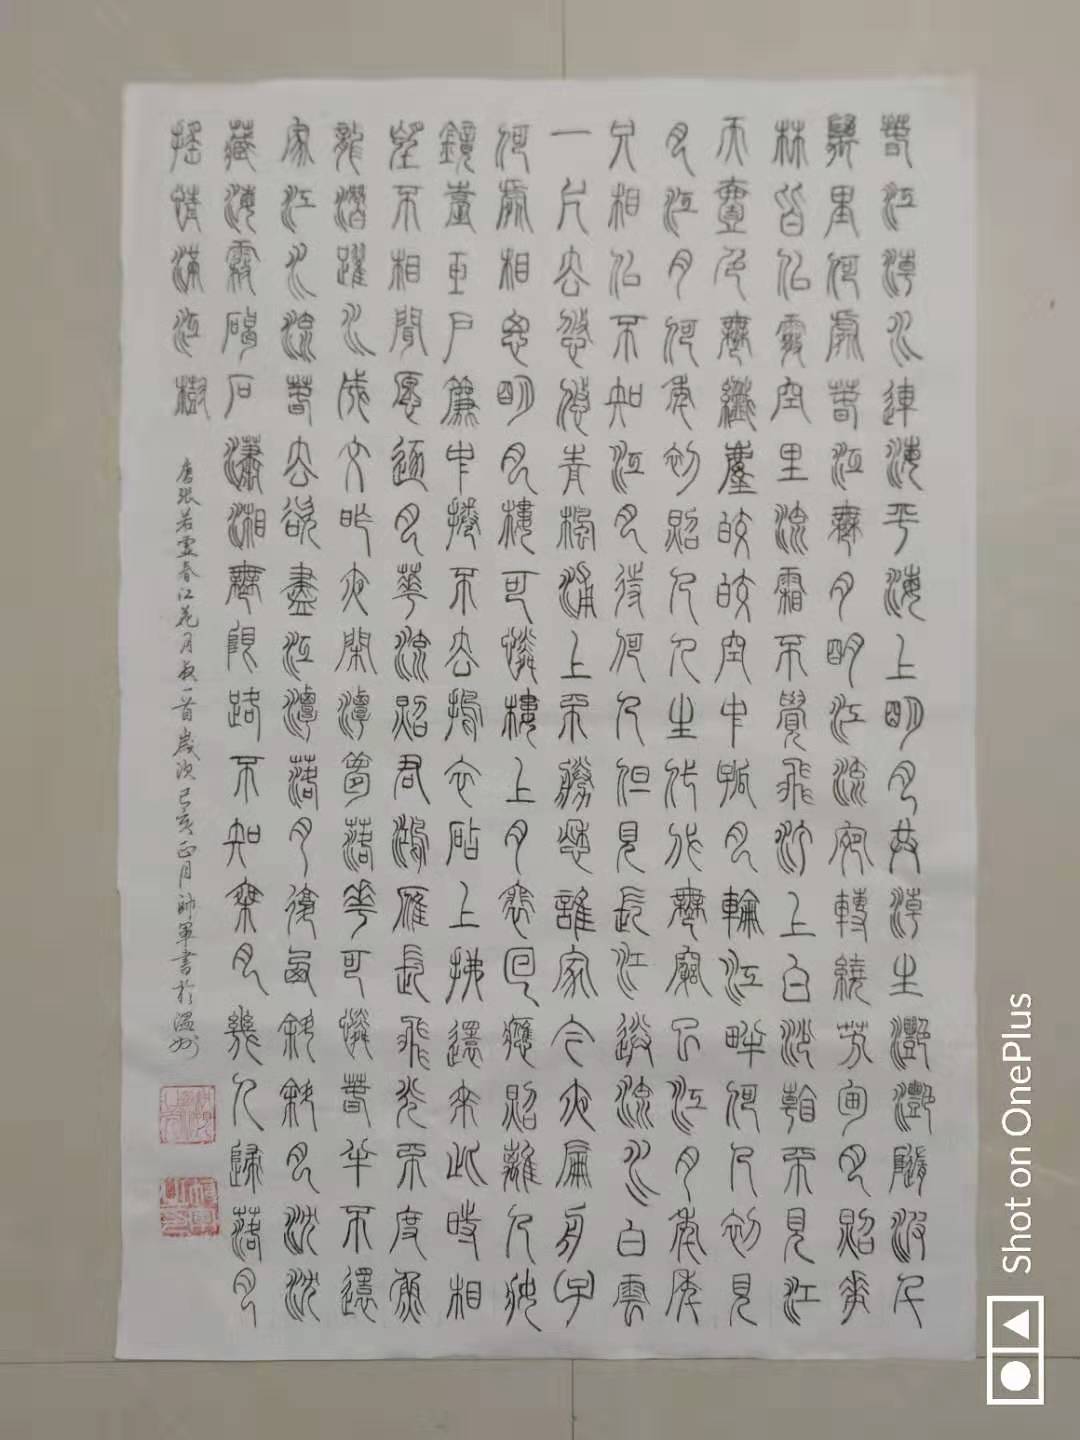 春江潮水連海平海上明月共潮生灩灩隨波千
萬里何處春江無月明江流宛轉繞芳甸月照花
林皆似霰空里流霜不覺飛汀上白沙看不見江
天一色無纖塵皎皎空中孤月輪江畔何人初見
月江月何年初照人人生代代無窮已江月年年
只相似不知江月待何人但見長江送流水白雲
一片去悠悠青楓浦上不勝愁誰家今夜扁舟子
何處相思明月樓可憐樓上月裴回應照離人妝
鏡臺玉戶簾中捲不去搗衣砧上拂還來此時相
望不相聞願逐月華流照君鴻雁長飛光不度魚
龍潛躍水成文昨夜閑潭夢落花可憐春半不還
家江水流春去欲盡江潭落月復西斜斜月沈沈
藏海霧碣石瀟湘無限路不知乘月幾人歸落月
搖情滿江樹
唐張若虛春江花月夜一首歲次己亥正月帥軍書於溫州
Shot on OnePlus